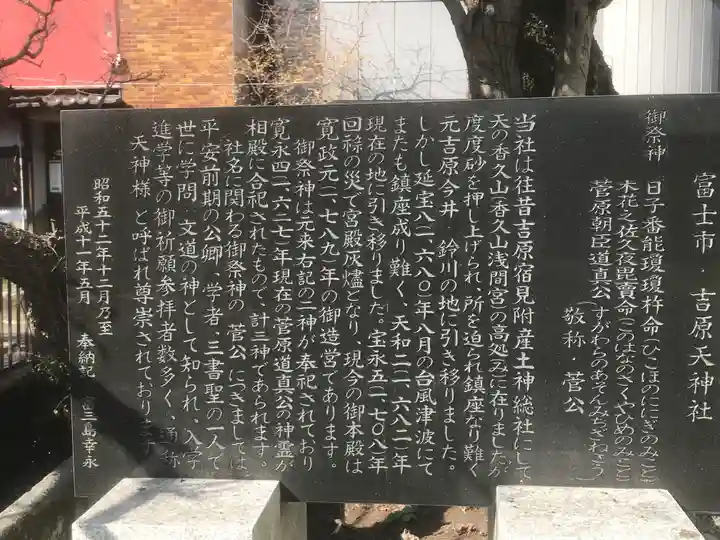 富士市・吉原天神社
御祭神 日子番能瓊瓊杵命(ひこほのににぎのみこと)
木花之佐久夜毘賣命(このはなのさくやひめのみこと)
菅原朝臣道真公(すがわらのあそんみちざねこう)
(敬称・菅公)
当社は往昔吉原宿見附産土神総社にして
天の香久山(香久山浅間宮)の高処(み)に在りましたが
度度砂を押し上げられ、所を迫られ鎮座なり難く
元吉原今井 鈴川の地に引き移りました。
しかし延宝八(一、六八〇)年八月の台風津波にて
またも鎮座成り難く、天和二(一、六八二)年
現在の地に引き移りました。宝永五(一、七〇八)年
回禄の災で宮殿灰燼となり、現今の御本殿は
寛政元(一、七八九)年の御造営であります。
御祭神は元来右記の二神が奉祀されており
寛永四(一、六二七)年現在の菅原道真公の神霊が
相殿に合祀されたもので、計三神であられます。
社名に関わる御祭神の 菅公 につきましては、
平安前期の公卿、学者、三書聖の一人で
世に学問・文道の神として知られ、入学
進学等の御祈願参拝者数多く、通称
天神様 と呼ばれ尊崇されております
昭和五十二年十二月乃至
平成十一年五月 奉納記 三島幸永